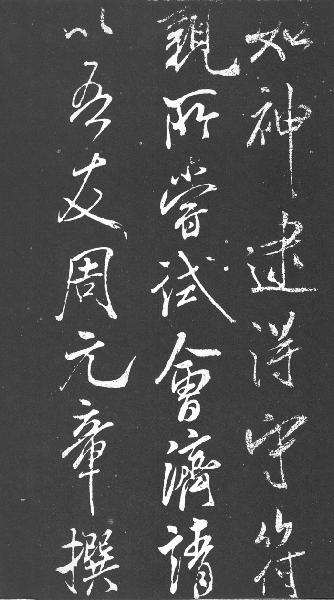 如神逮得守符
親所嘗試會濟請
以吾友周元章撰